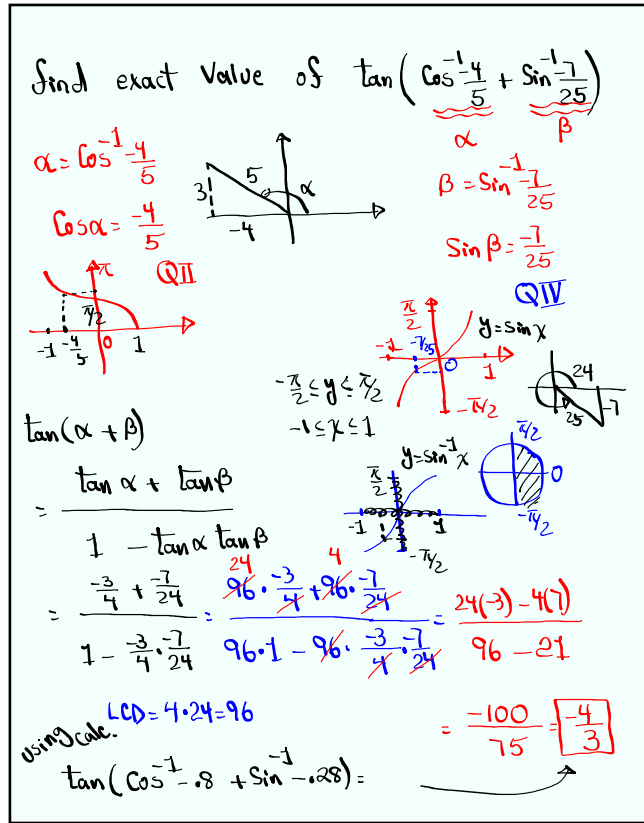 find exact value of tan(Cos⁻¹ -4/5 + Sin⁻¹ -7/25)
α β
α = Cos⁻¹ -4/5
Cosα = -4/5
QII
3 5 α
-4
β = Sin⁻¹ -7/25
Sin β = -7/25
QIV
π
π/2
-1 -4/5 0 1
π/2 y=sin x
-1 -7/25 0 1
-π/2
24
-7
25
-π/2 ≤ y ≤ π/2
-1 ≤ x ≤ 1
y=sin⁻¹ x
π/2
-1 1
-π/2
π/2
0
-π/2
tan(α + β)
= (tan α + tan β)/(1 - tan α tan β)
24 4
= (-3/4 + -7/24)/(1 - -3/4 · -7/24) = (96 · -3/4 + 96 · -7/24)/(96·1 - 96 · -3/4 · -7/24) = (24(-3) - 4(7))/(96 - 21)
LCD = 4·24 = 96
= -100/75 = -4/3
using calc.
tan(Cos⁻¹ -.8 + Sin⁻¹ -.28) =